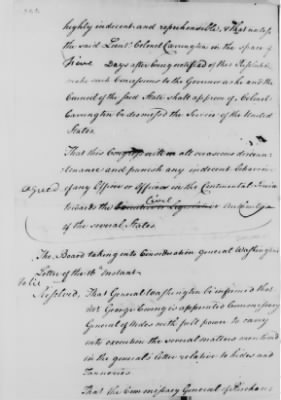 highly indecent and reprehensible, & that unless
the said Lieut. Colonel Carrington in the space of
Days after being notified of this Resolution
make such Concessions to the Governor as he and the
Council of the said State shall approve of, Colonel
Carrington be dismissed the Service of the United
States
That this Congress will on all occasions discoun-
tenance and punish any indecent behavior
agreed of any Officer or Officers in the Continental Service
towards the Executive or Legislative Civil Authority
of the several States
The Board taking into Consideration General Washington's
Letter of the 16th Instant
Resolved, That General Washington be informed that
Mr George Ewing is appointed Commissary
General of Hides with full power to carry
into execution the several matters mentioned
in the general's letter relative to hides and
Tanneries
That the Commissary General of Purchases